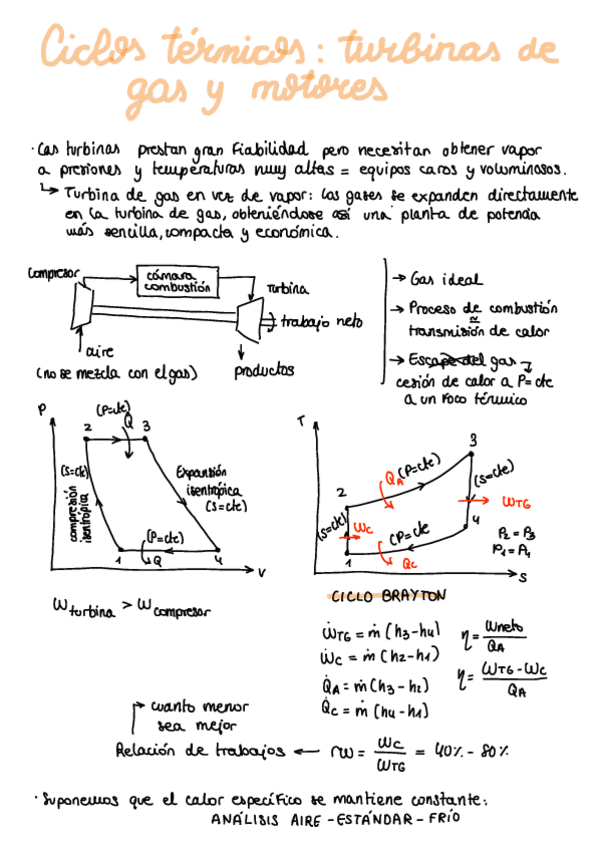 Ciclos térmicos: turbinas de
gas y motores
· Las turbinas prestan gran fiabilidad pero necesitan obtener vapor
a presiones y temperaturas muy altas = equipos caros y voluminosos.
↳ Turbina de gas en vez de vapor: los gases se expanden directamente
en la turbina de gas, obteniéndose así una planta de potencia
más sencilla, compacta y económica.
compresor
cámara
combustión
turbina
trabajo neto
aire
(no se mezcla con el gas)
productos
→ Gas ideal
→ Proceso de combustión
≃
transmisión de calor
→ Escape del gas
cesión de calor a P=cte
a un foco térmico
P
(P=cte)
2
Q
3
(s=cte)
compresión
isentrópia
Expansión
isentrópica
(s=cte)
(P=cte)
1
Q
4
V
T
3
2
QA
(P=cte)
(s=cte)
WTG
(s=cte)
Wc
(P=cte
4
1
Qc
P2 = P3
P1 = P4
S
CICLO BRAYTON
Wturbina > Wcompresor
ẆTG = ṁ (h3-h4)
Ẇc = ṁ (h2-h1)
Q̇A = ṁ (h3-h2)
Q̇c = ṁ (h4-h1)
η = Wneto / QA
η = WTG - Wc / QA
cuanto menor
sea mejor
Relación de trabajos ← rw = Wc / WTG = 40% - 80%
· Suponemos que el calor específico se mantiene constante:
ANÁLISIS AIRE-ESTÁNDAR-FRÍO